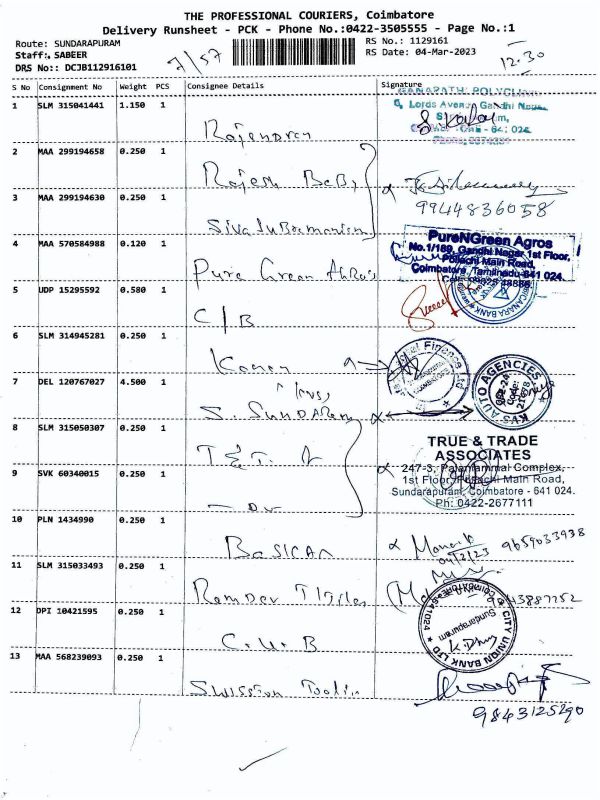 THE PROFESSIONAL COURIERS, Coimbatore
Delivery Runsheet - PCK - Phone No.:0422-3505555 - Page No.:1
Route: SUNDARAPURAM
RS No.: 1129161
Staff: SABEER
7/57
RS Date: 04-Mar-2023
12.30
DRS No:: DCJB112916101
S No Consignment No Weight PCS Consignee Details Signature
1 SLM 315041441 1.150 1 Rajendran
Lords Avenue Gandhi Nagar
2 MAA 299194658 0.250 1 Rajesh Babu
3 MAA 299194630 0.250 1 Siva Subramanian
9944836058
4 MAA 570584988 0.120 1 Pure Green Agros
PureNGreen Agros
No.1/189, Gandhi Nagar 1st Floor,
Pollachi Main Road,
Coimbatore, Tamilnadu-641 024.
5 UDP 15295592 0.580 1 C/B
CANARA BANK
6 SLM 314945281 0.250 1
7 DEL 120767027 4.500 1 S. SUNDARAM
KVS AUTO AGENCIES
8 SLM 315050307 0.250 1
TRUE & TRADE
ASSOCIATES
9 SVK 60340015 0.250 1
247-3, Palaniammal Complex,
1st Floor, Pollachi Main Road,
Sundarapuram, Coimbatore - 641 024.
Ph: 0422-2677111
10 PLN 1434990 0.250 1
9659033938
11 SLM 315033493 0.250 1
12 DPI 10421595 0.250 1 C.U.B
CITY UNION BANK LTD
Sundarapuram
13 MAA 568239093 0.250 1
9843125290